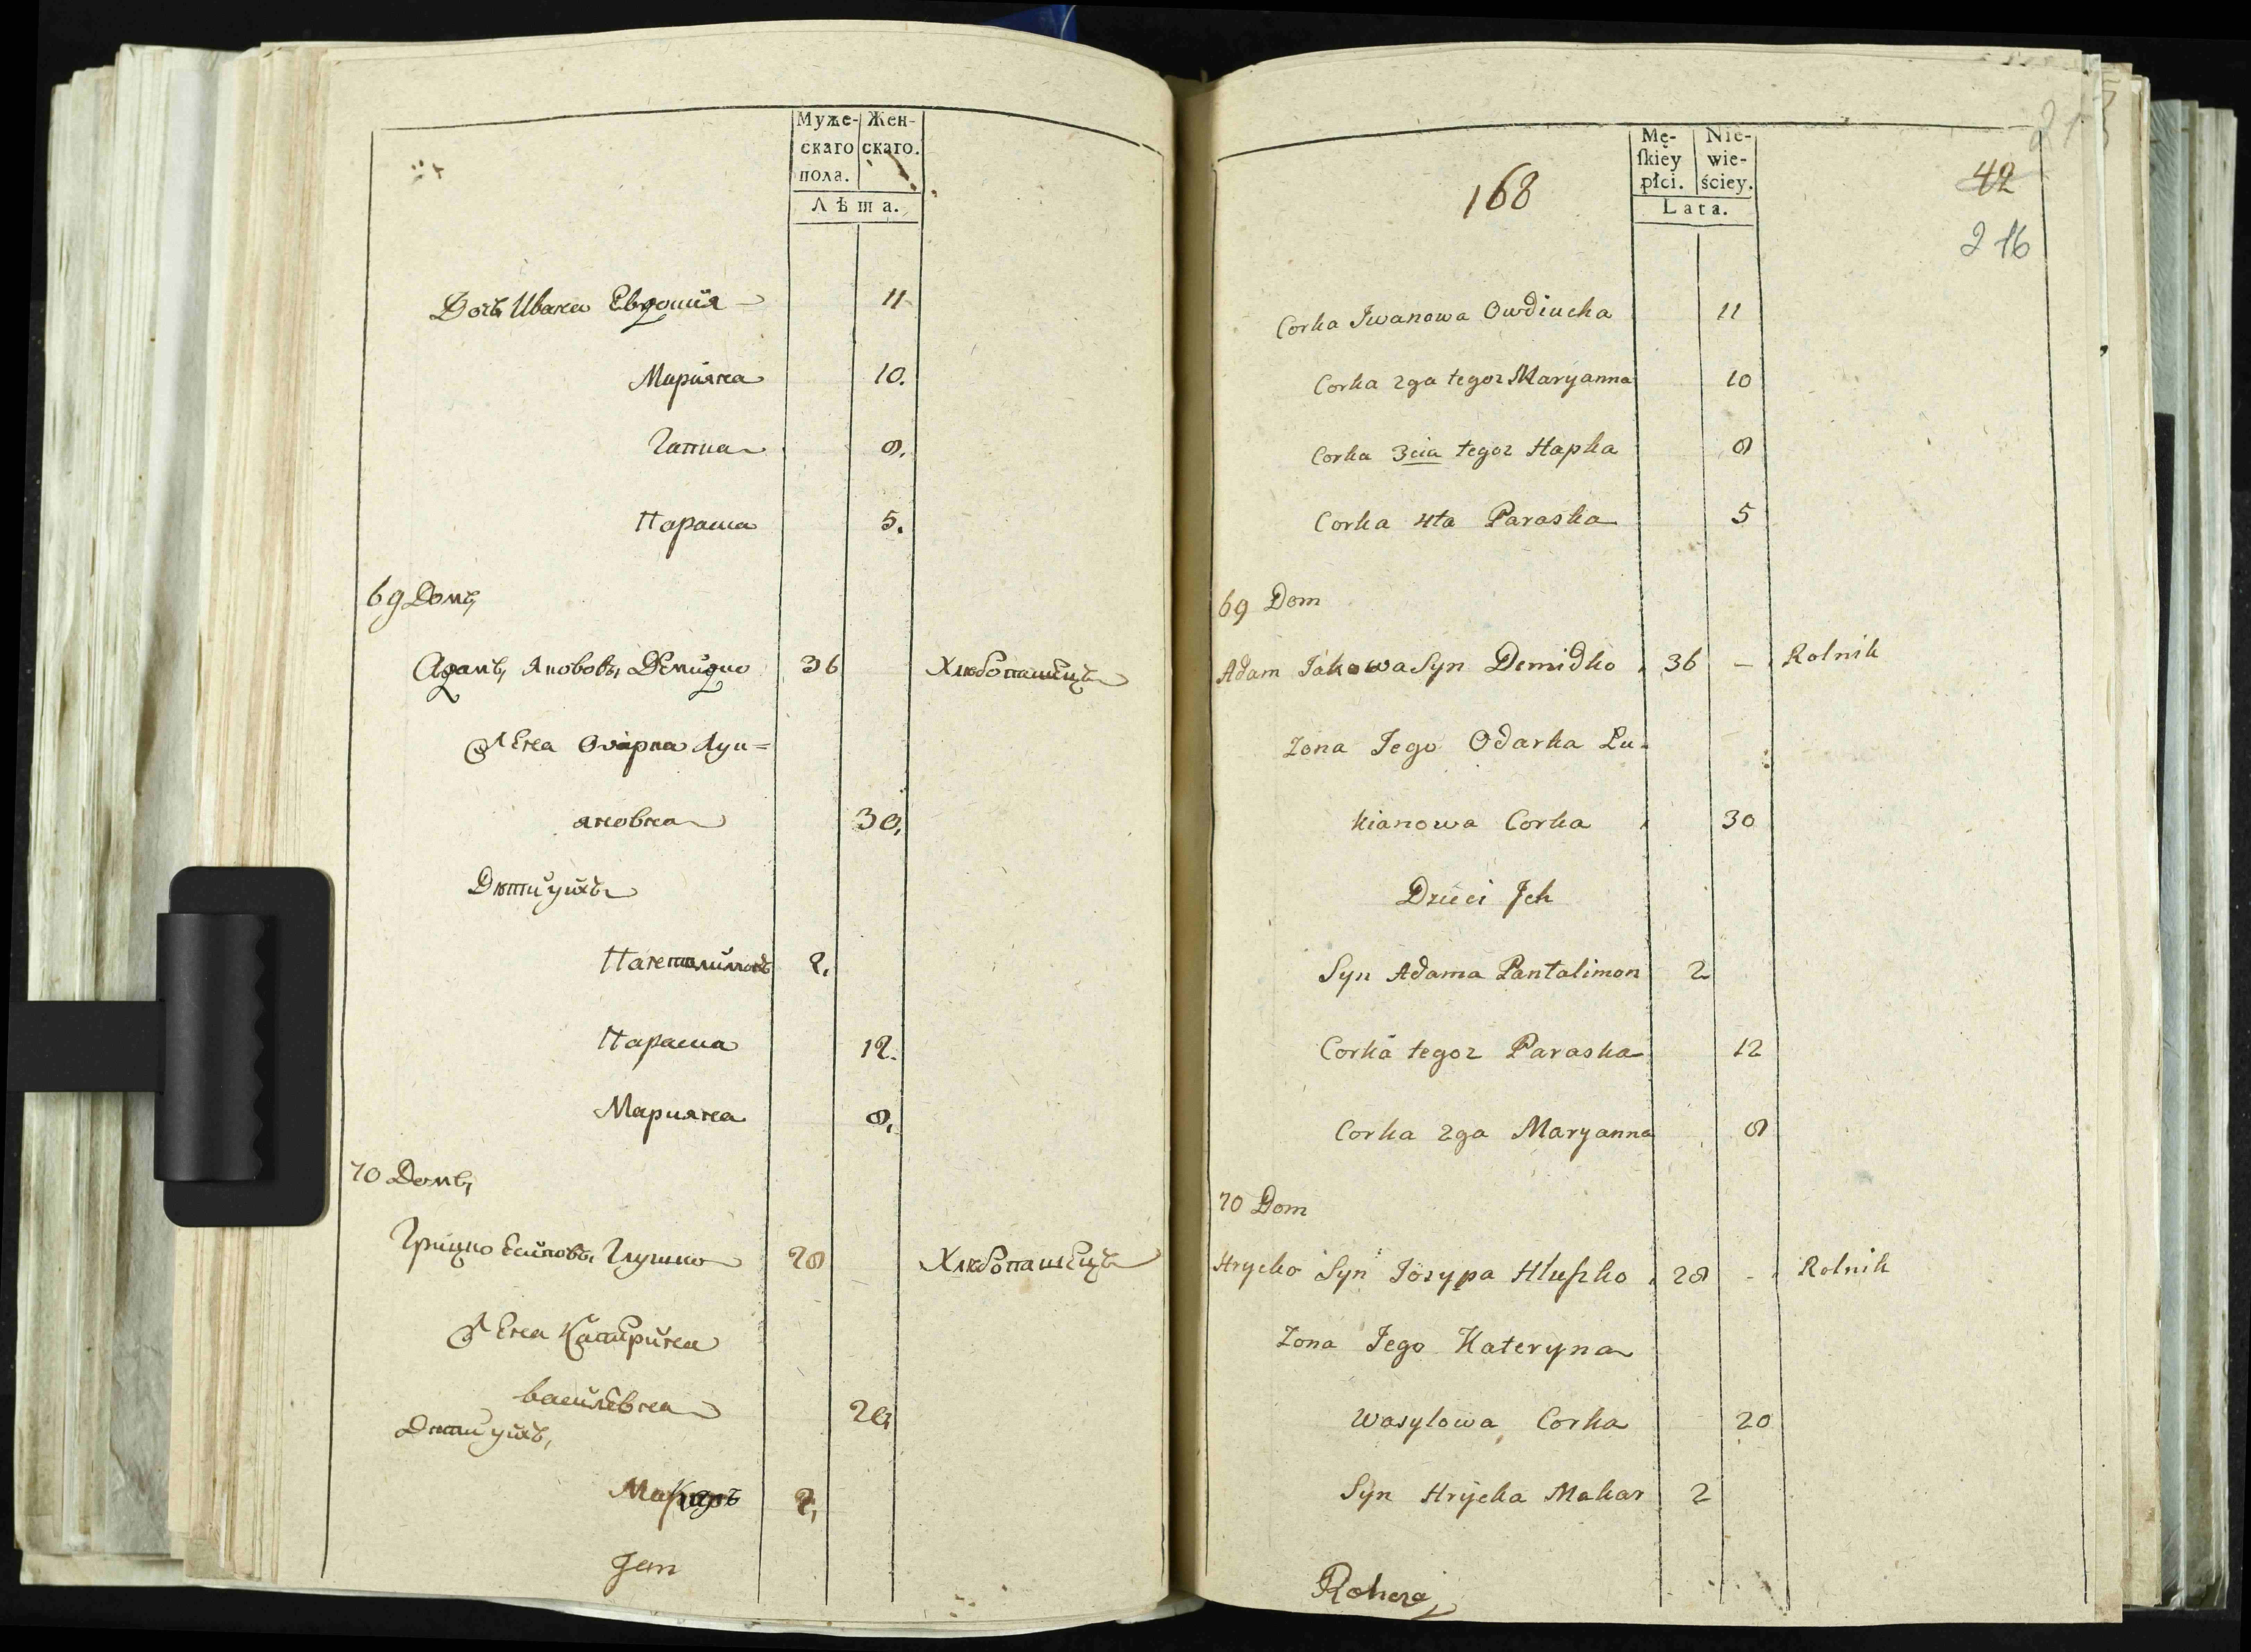 Муже- Жен-
скаго скаго.
пола.
Лѣта.
Дочь Ивана Евдокия 11
Марияна 10.
Гапка 8.
Параска 5.
69 Домъ,
Адамъ Якововъ Демидко 36 Хлѣбопашецъ
Жена Одарка Лукі=
яновна 30,
Дѣти ихъ
Панталимонъ 2,
Параска 12.
Марияна 8,
70 Домъ,
Грицко Есиповъ Глушко 28 Хлѣбопашецъ
Жена Катерина
Василевна 20,
Дѣти ихъ,
Макаръ 2,
Jan
213
168
Mę- Nie-
ſkiey wie-
płci. ściey.
Lata.
42
216
Corka Jwanowa Owdiucha 11
Corka 2ga tegoz Maryanna 10
Corka 3cia tegoz Hapka 8
Corka 4ta Paraska 5
69 Dom
Adam Jakowa Syn Demidko 36 – Rolnik
Zona Jego Odarka Lu-
kianowa Corka 30
Dzieci Jch
Syn Adama Pantalimon 2
Corka tegoz Paraska 12
Corka 2ga Maryanna 8
70 Dom
Hrycko Syn Jozypa Hłuſzko 28 - Rolnik
Zona Jego Kateryna
Wasylowa Corka 20
Syn Hrycka Makar 2